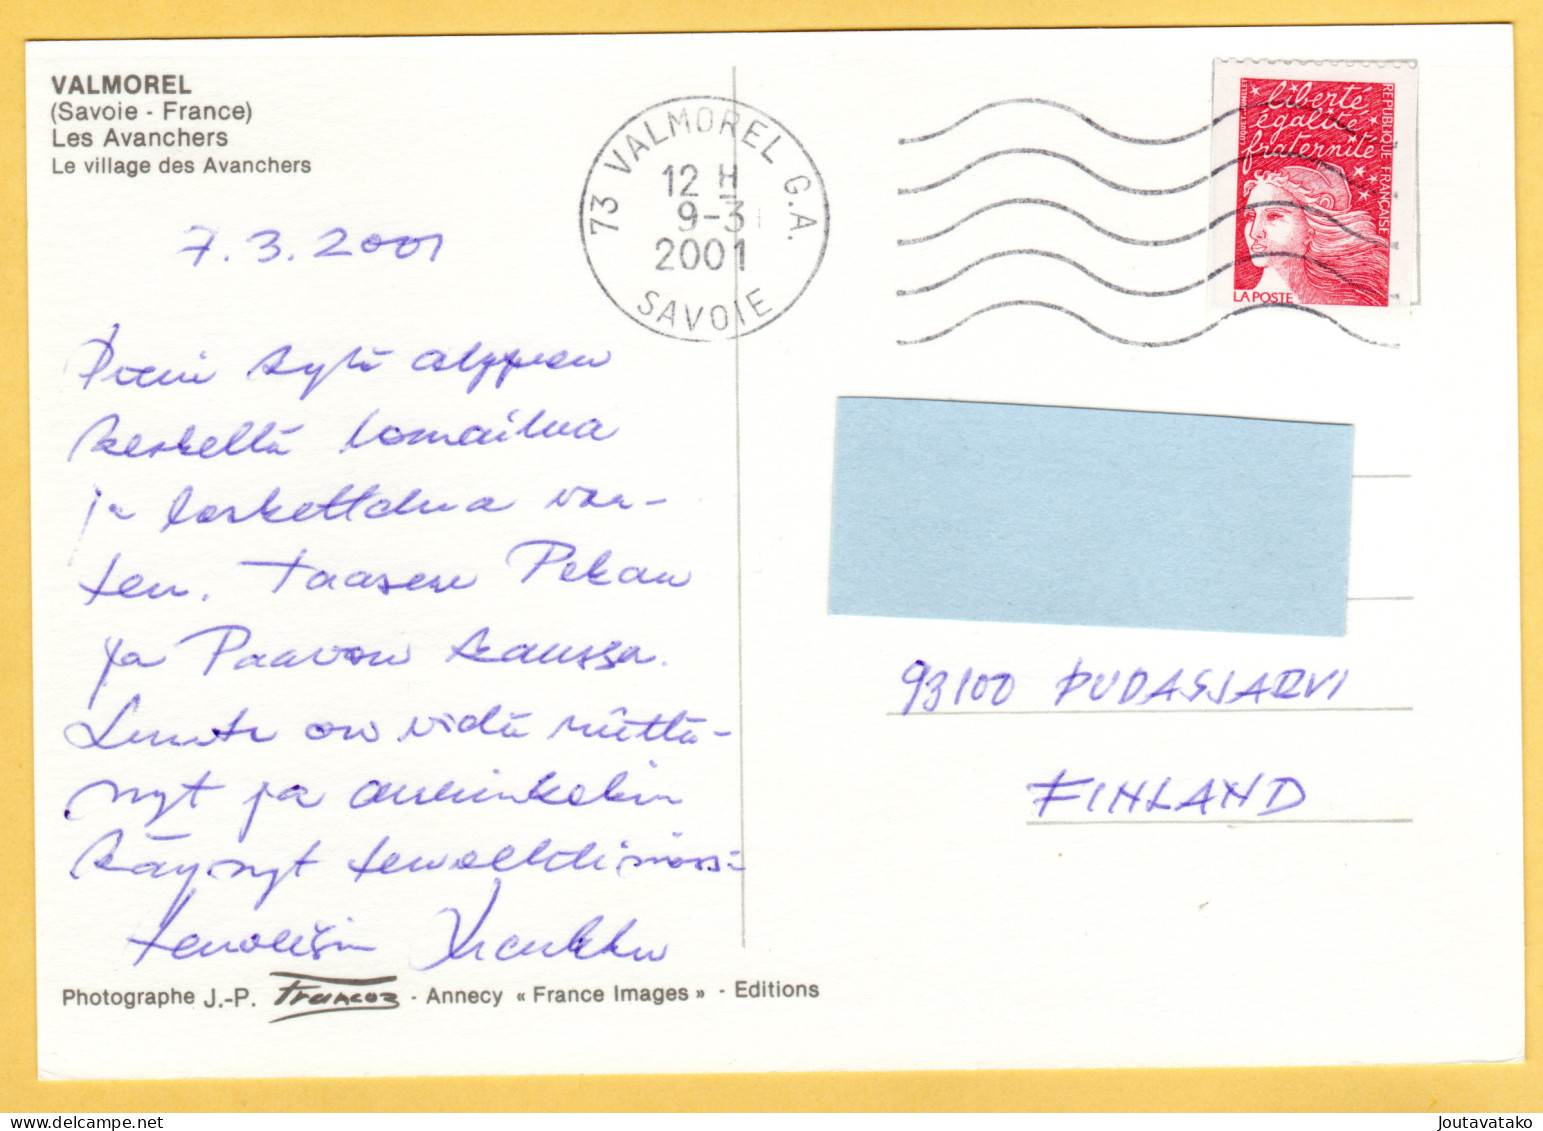 VALMOREL
(Savoie - France)
Les Avanchers
Le village des Avanchers
7.3.2001
Pieni kylä alppien
keskellä lomailua
ja laskettelua var-
ten. Taasen Pekan
ja Paavon kanssa.
Lunta on vielä riittä-
nyt ja aurinkokin
käynyt
terveisin Markku
Photographe J.-P. Francoz - Annecy « France Images » - Editions
73 VALMOREL G.A.
12 H
9-3
2001
SAVOIE
liberté
égalité
fraternité
REPUBLIQUE FRANÇAISE
LUQUET-JUMELET
LA POSTE
93100 PUDASJARVI
FINLAND
joutavatako